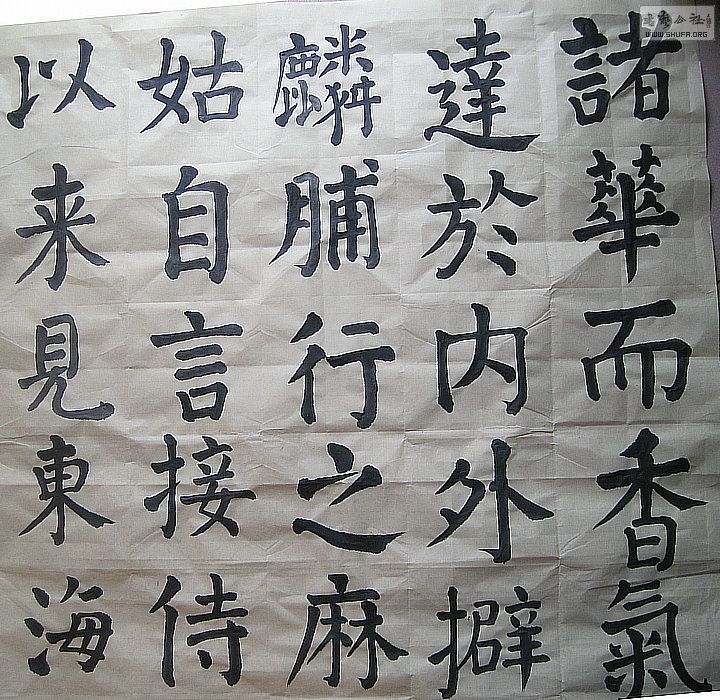 諸華而香氣
達於內外擗
麟脯行之麻
姑自言接侍
以来見東海
WWW.SHUFA.ORG